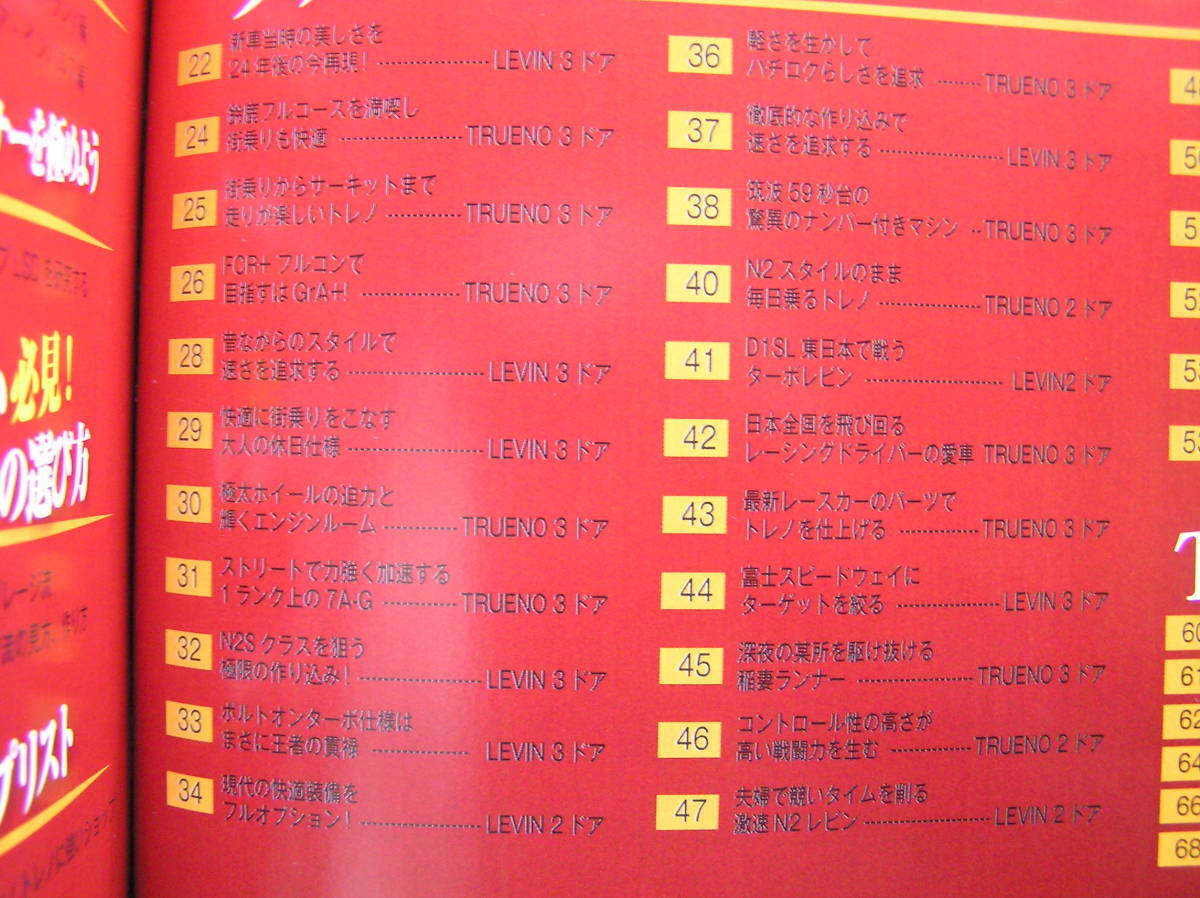 ナーを極めよう
LSDを研究する
必見！
の選び方
プリスト
22 新車当時の美しさを
24年後の今再現！ LEVIN 3ドア
24 鈴鹿フルコースを満喫し
街乗りも快適 TRUENO 3ドア
25 街乗りからサーキットまで
走りが楽しいトレノ TRUENO 3ドア
26 FCR+フルコンで
目指すはGrA+! TRUENO 3ドア
28 昔ながらのスタイルで
速さを追求する LEVIN 3ドア
29 快適に街乗りをこなす
大人の休日仕様 LEVIN 3ドア
30 極太ホイールの迫力と
輝くエンジンルーム TRUENO 3ドア
31 ストリートで力強く加速する
1ランク上の7A-G TRUENO 3ドア
32 N2Sクラスを狙う
極限の作り込み! LEVIN 3ドア
33 ボルトオンターボ仕様は
まさに王者の貫禄 LEVIN 3ドア
34 現代の快適装備を
フルオプション! LEVIN 2ドア
36 軽さを生かして
ハチロクらしさを追求 TRUENO 3ドア
37 徹底的な作り込みで
速さを追求する LEVIN 3ドア
38 筑波59秒台の
驚異のナンバー付きマシン TRUENO 3ドア
40 N2スタイルのまま
毎日乗るトレノ TRUENO 2ドア
41 D1SL東日本で戦う
ターボレビン LEVIN2ドア
42 日本全国を飛び回る
レーシングドライバーの愛車 TRUENO 3ドア
43 最新レースカーのパーツで
トレノを仕上げる TRUENO 3ドア
44 富士スピードウェイに
ターゲットを絞る LEVIN 3ドア
45 深夜の某所を駆け抜ける
稲妻ランナー TRUENO 3ドア
46 コントロール性の高さが
高い戦闘力を生む TRUENO 2ドア
47 夫婦で競いタイムを削る
激速N2レビン LEVIN 2ドア
60
61
62
64
66
68